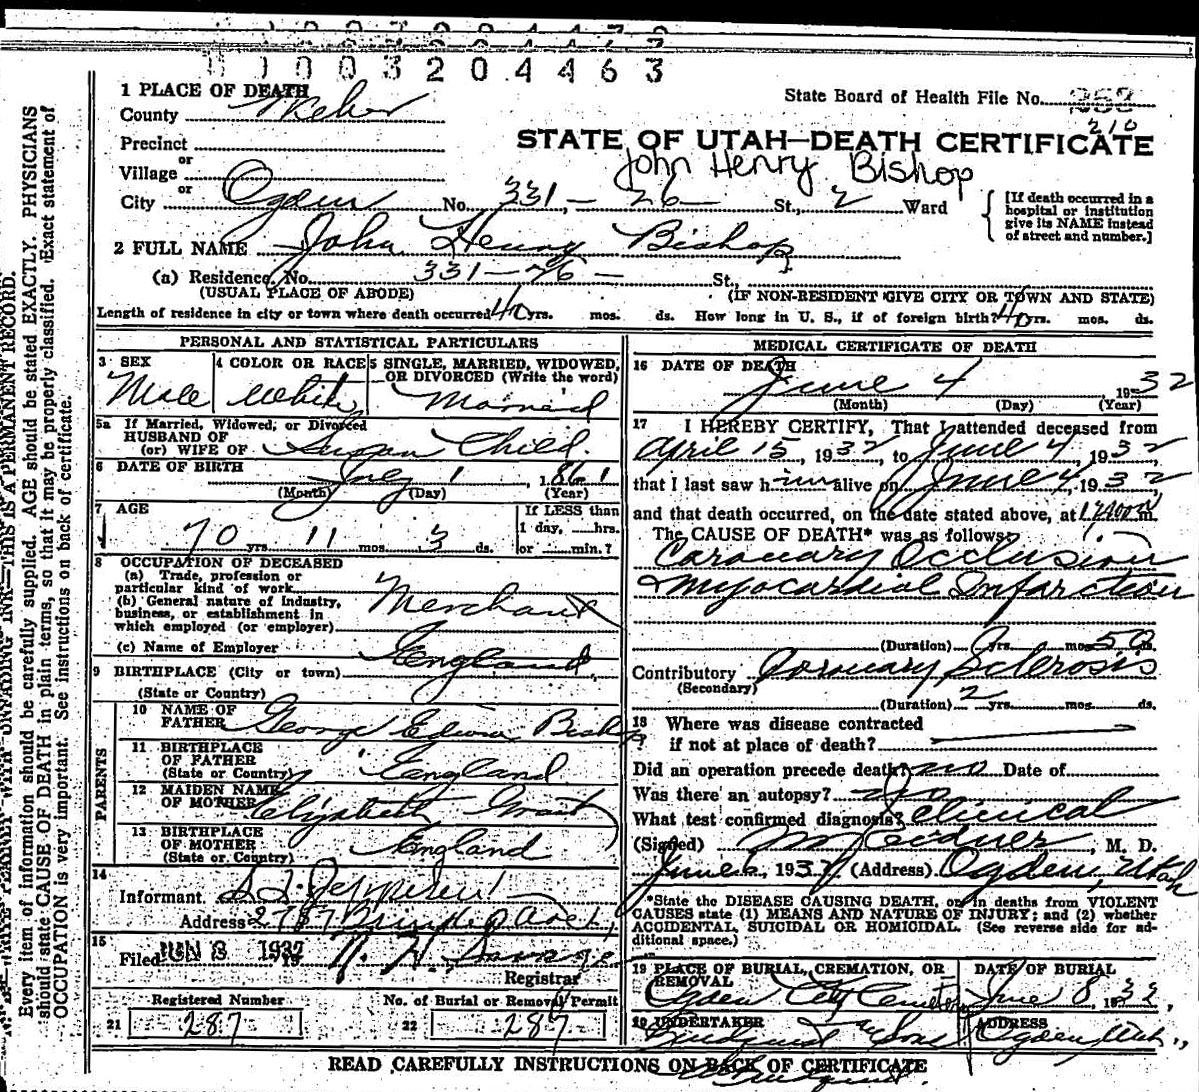 1 0 0 3 2 0 4 4 6 3
1 PLACE OF DEATH
County Weber
State Board of Health File No. 353
210
Precinct
or
Village
or
STATE OF UTAH—DEATH CERTIFICATE
John Henry Bishop
City Ogden No. 331 - 26 - St., 2 Ward
[If death occurred in a hospital or institution give its NAME instead of street and number.]
2 FULL NAME John Henry Bishop
(a) Residence. No. 331 - 26 - St.,
(USUAL PLACE OF ABODE) (IF NON-RESIDENT GIVE CITY OR TOWN AND STATE)
Length of residence in city or town where death occurred 40 yrs. mos. ds. How long in U. S., if of foreign birth? 40 yrs. mos. ds.
PERSONAL AND STATISTICAL PARTICULARS
3 SEX Male
4 COLOR OR RACE White
5 SINGLE, MARRIED, WIDOWED, OR DIVORCED (Write the word) Married
5a If Married, Widowed, or Divorced
HUSBAND OF
(or) WIFE OF Susan Child.
6 DATE OF BIRTH July 1, 1861
(Month) (Day) (Year)
7 AGE 70 yrs. 11 mos. 3 ds.
If LESS than
1 day, hrs.
or min.?
8 OCCUPATION OF DECEASED
(a) Trade, profession or
particular kind of work
(b) General nature of industry,
business, or establishment in
which employed (or employer) Merchant
(c) Name of Employer
9 BIRTHPLACE (City or town) England
(State or Country)
PARENTS
10 NAME OF FATHER George Edwin Bishop
11 BIRTHPLACE OF FATHER (State or Country) England
12 MAIDEN NAME OF MOTHER Elizabeth Grant
13 BIRTHPLACE OF MOTHER (State or Country) England
14 Informant
Address 2787 Ave.
15 Filed JUN 8 1932 19
Registrar
Registered Number
21 287
No. of Burial or Removal Permit
22 287
MEDICAL CERTIFICATE OF DEATH
16 DATE OF DEATH
June 4 1932
(Month) (Day) (Year)
17 I HEREBY CERTIFY, That I attended deceased from
April 15, 1932, to June 4, 1932,
that I last saw him alive on June 4, 1932,
and that death occurred, on the date stated above, at m.
The CAUSE OF DEATH* was as follows:
Coronary Occlusion
& Myocardial Infarction
(Duration) yrs. mos. 50 ds.
Contributory Coronary Sclerosis
(Secondary)
(Duration) 2 yrs. mos. ds.
18 Where was disease contracted
if not at place of death?
Did an operation precede death? no Date of
Was there an autopsy? no
What test confirmed diagnosis? Clinical
(Signed) , M. D.
June 6, 1932 (Address) Ogden, Utah
*State the DISEASE CAUSING DEATH, or in deaths from VIOLENT
CAUSES state (1) MEANS AND NATURE OF INJURY; and (2) whether
ACCIDENTAL, SUICIDAL OR HOMICIDAL. (See reverse side for ad-
ditional space.)
19 PLACE OF BURIAL, CREMATION, OR REMOVAL
Ogden City Cemetery
DATE OF BURIAL
June 8, 1932,
20 UNDERTAKER
& Sons
ADDRESS
Ogden, Utah.
READ CAREFULLY INSTRUCTIONS ON BACK OF CERTIFICATE
WRITE PLAINLY WITH UNFADING INK—THIS IS A PERMANENT RECORD.
Every item of information should be carefully supplied. AGE should be stated EXACTLY. PHYSICIANS
should state CAUSE OF DEATH in plain terms, so that it may be properly classified. Exact statement of
OCCUPATION is very important. See instructions on back of certificate.